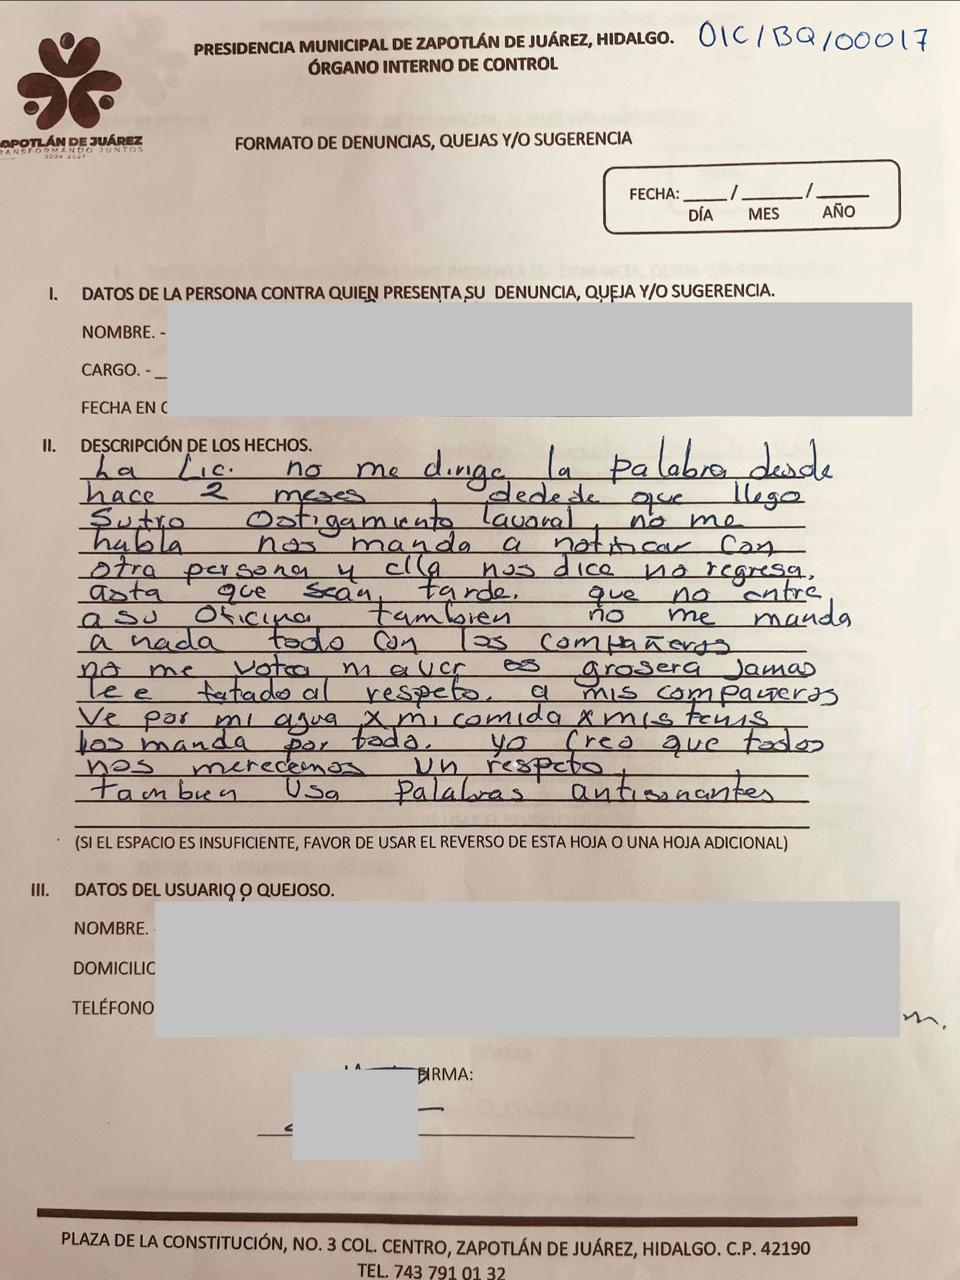 PRESIDENCIA MUNICIPAL DE ZAPOTLÁN DE JUÁREZ, HIDALGO. OIC/BQ/00017
ÓRGANO INTERNO DE CONTROL
APOTLÁN DE JUÁREZ
TRANSFORMANDO JUNTOS
2024-2027
FORMATO DE DENUNCIAS, QUEJAS Y/O SUGERENCIA
FECHA: ____/_____/____
DÍA MES AÑO
I. DATOS DE LA PERSONA CONTRA QUIEN PRESENTA SU DENUNCIA, QUEJA Y/O SUGERENCIA.
NOMBRE. -
CARGO. -
FECHA EN
II. DESCRIPCIÓN DE LOS HECHOS.
La Lic. no me dirige la palabra desde
hace 2 meses, dedede que llego
Sutro Ostigamiento lavoral, no me
habla nos manda a notificar Con
otra persona y ella nos dice no regresa,
asta que sean, tarde. que no entre
a su Oficina tambien no me manda
a nada todo con los compañeros
no me es grosera Jamas
le e tatado al respeto. a mis compañeros
Ve por mi agua x mi comida x mis tenis
los manda por todo. yo Creo que todos
nos merecemos un respeto,
tambien Usa Palabras antisonantes
(SI EL ESPACIO ES INSUFICIENTE, FAVOR DE USAR EL REVERSO DE ESTA HOJA O UNA HOJA ADICIONAL)
III. DATOS DEL USUARIO O QUEJOSO.
NOMBRE.
DOMICILIO
TELÉFONO
FIRMA:
PLAZA DE LA CONSTITUCIÓN, NO. 3 COL. CENTRO, ZAPOTLÁN DE JUÁREZ, HIDALGO. C.P. 42190
TEL. 743 791 01 32